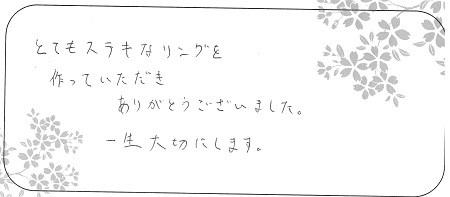 とてもステキなリングを
作っていただき
ありがとうございました。
一生大切にします。